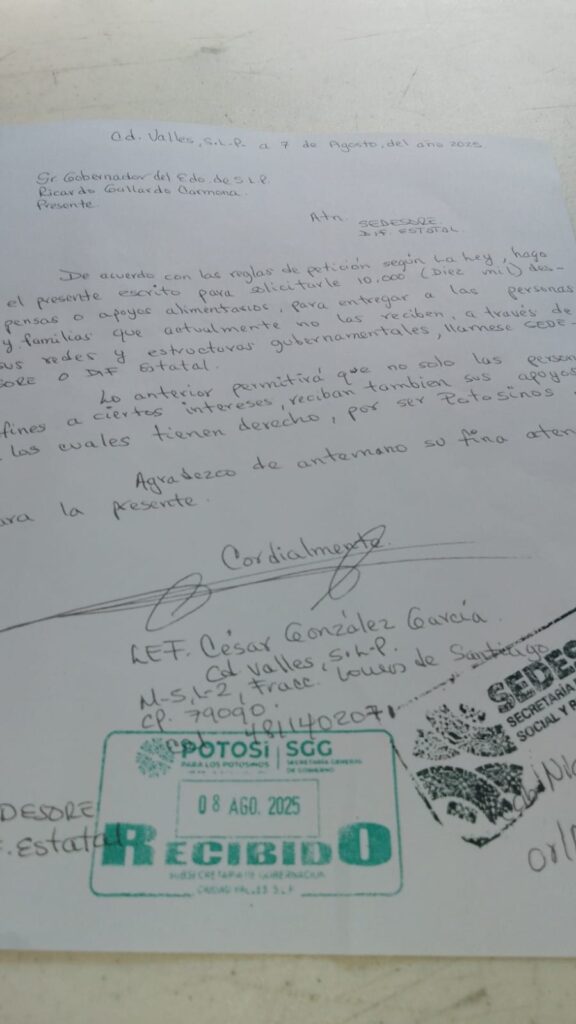 Cd. Valles, S.L.P. a 7 de Agosto, del año 2025
Sr. Gobernador del Edo. de S.L.P.
Ricardo Gallardo Cardona.
Presente.
Atn. SEDESORE.
DIF. ESTATAL.
De acuerdo con las reglas de petición según La Ley, hago
el presente escrito para solicitarle 10,000 (Diez mil) des-
pensas o apoyos alimentarios, para entregar a las personas
y familias que actualmente no las reciben, a través de
sus redes y estructuras gubernamentales, llamese SEDE-
SORE o DIF Estatal.
Lo anterior permitirá que no solo las person
fines a ciertos intereses, reciban tambien sus apoyos
las cuales tienen derecho, por ser Potosinos
Agradezco de antemano su fina aten
ara la presente.
Cordialmente.
LEF. César González García.
Cd. Valles, S.L.P.
M-5, L-2, Fracc. Lomas de Santiago
CP. 79090.
cel. 4811402071
POTOSÍ | SGG
PARA LOS POTOSINOS
SECRETARÍA GENERAL
DE GOBIERNO
08 AGO. 2025
RECIBIDO
SUBSECRETARIA DE GOBERNACIÓN
CIUDAD VALLES S.L.P.
DESORE
F. Estatal
SEDES
SECRETARÍA
SOCIAL Y